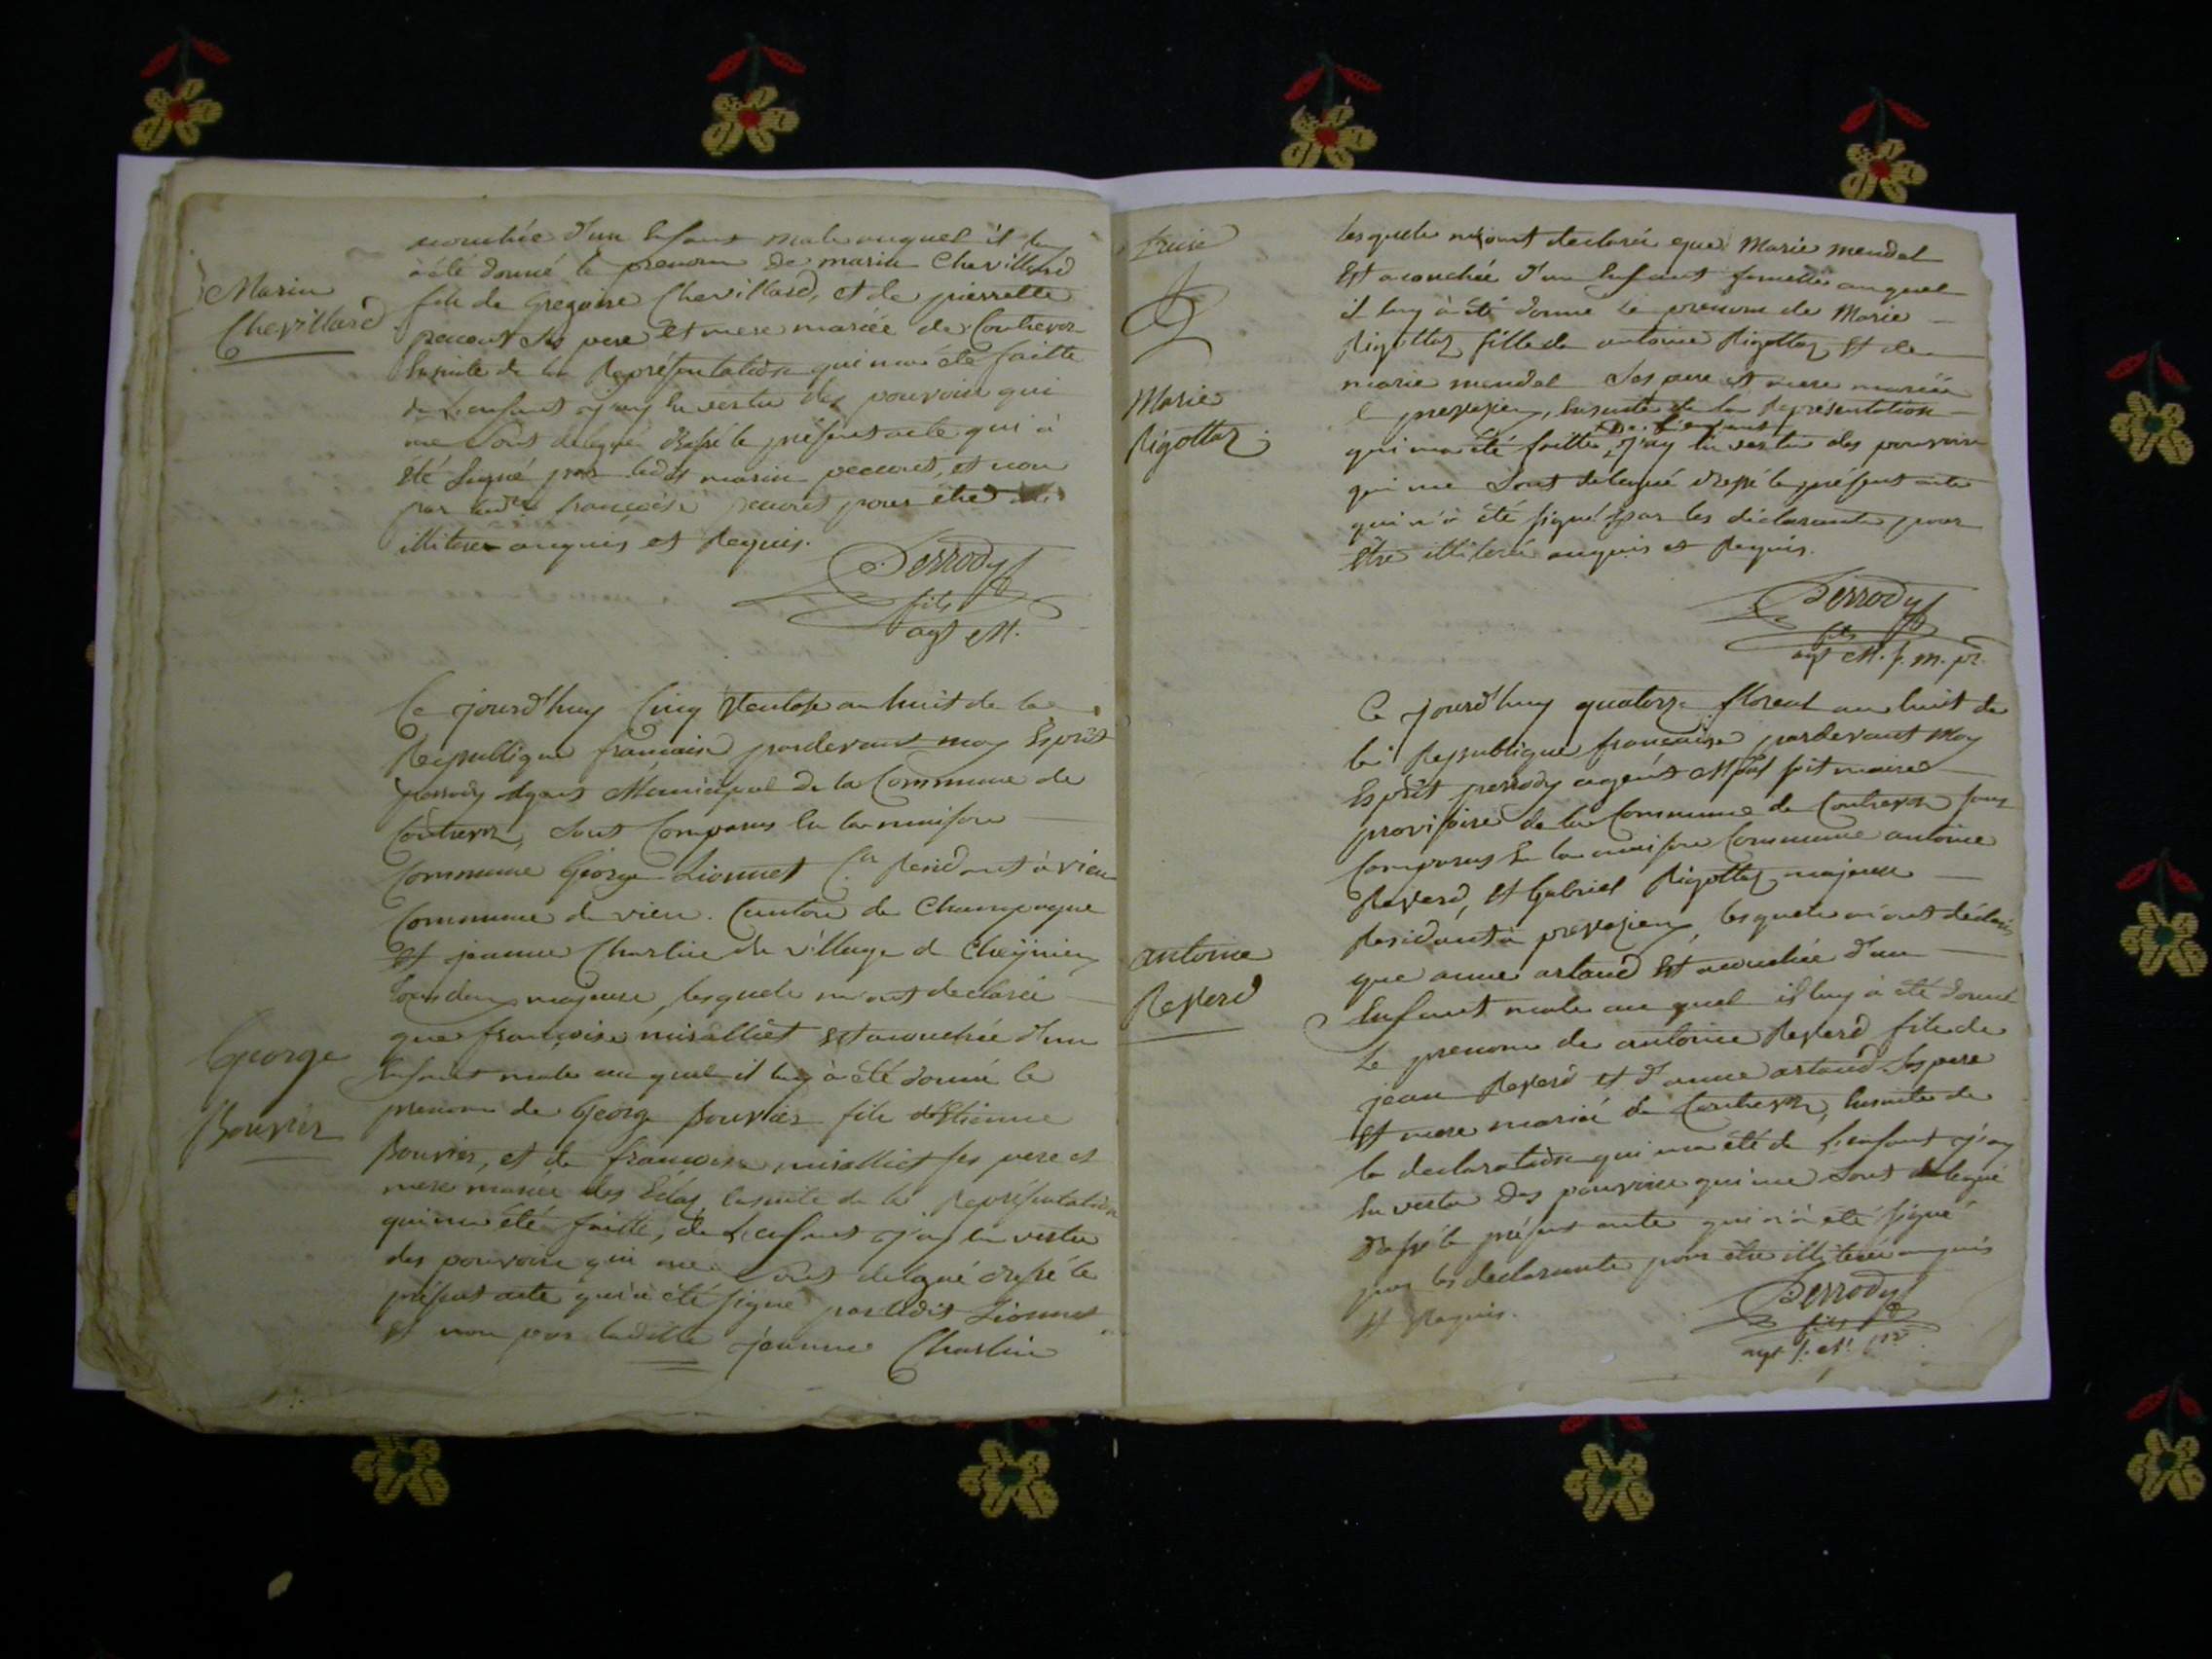 acouchée d'un Enfant male auquel il luy
à été donné le prenom de marin Chevillard
Marin
Chevillard
fils de Gregoire Chevillard, et de pierrette
peccout ses pere et mere mariée de Contrevoz
Ensuite de la Représentation qui ma été faitte
de L'enfant j'ay En vertu des pouvoirs qui
me Sont delegué Dressé le présent acte qui à
été Signé par ledit marin peccout, et non
par françoise peccout pour être
illiteré enquis et Requis.
Perrody
fils
agt M.
Ce jourd'huy Cinq Ventose an huit de la
Republique française pardevant moy Esprit
perrody Agent Municipal de la Commune de
Contrevoz, Sont Comparus En la maison
Commune George Lionnet Résidant à vieu
Commune de vieu. Canton de Champagne
Et jeanne Charlin du village de Cheyniey
Tous deux majeurs, lesquels m'ont declarée
que françoise mirallict est acouchée d'un
George
Enfant male au quel il luy à été donné le
Bouvier
prenom de George Bouvier fils d'Etienne
Bouvier, et de françoise mirallict ses pere et
mere mariée des Ecla, Ensuite de la Représentation
qui ma été faitte, de L'enfant j'ay En vertu
des pouvoirs qui me Sont delegué dressé le
présent acte qui à été signé par ledit Lionnet
et non par laditte jeanne Charlin
treize
Marie
Rigottaz
lesquels m'ont declarée que Marie mendal
Est acouchée d'un Enfant femelle auquel
il luy à été donné le prenom de Marie
Rigottaz fille de antoine Rigottaz Et de
marie mendal Ses pere et mere mariée
à preveyzieu, Ensuite de la Représentation
De L'enfant
qui ma été faitte, j'ay En vertu des pouvoirs
qui me Sont delegué dressé le présent acte
qui n'à été signé par les déclarants pour
être illiteré enquis et Requis.
Perrody
fils
agt M. f. m. pr.
Ce jourd'huy quatorze floreal an huit de
la Republique française pardevant moy
Esprit perrody agent Mpal fait maire
provisoire de la Commune de Contrevoz Sont
Comparus En la maison Commune antoine
Reverd, Et Gabriel Rigottaz majeurs
Residant à preveyzieu, lesquels m'ont déclaré
antoine
Reverd
que anne artaud Est acouchée d'un
Enfant male au quel il luy à été donné
Le prenom de antoine Reverd fils de
jean Reverd et d'anne artaud Ses pere
Et mere mariée de Contrevoz, Ensuite de
la declaration qui ma été de L'enfant j'ay
En vertu des pouvoirs qui me Sont delegué
Dressé le présent acte qui n'à été signé
par les declarants pour être illiteré enquis
Et Requis.
Perrody
fils